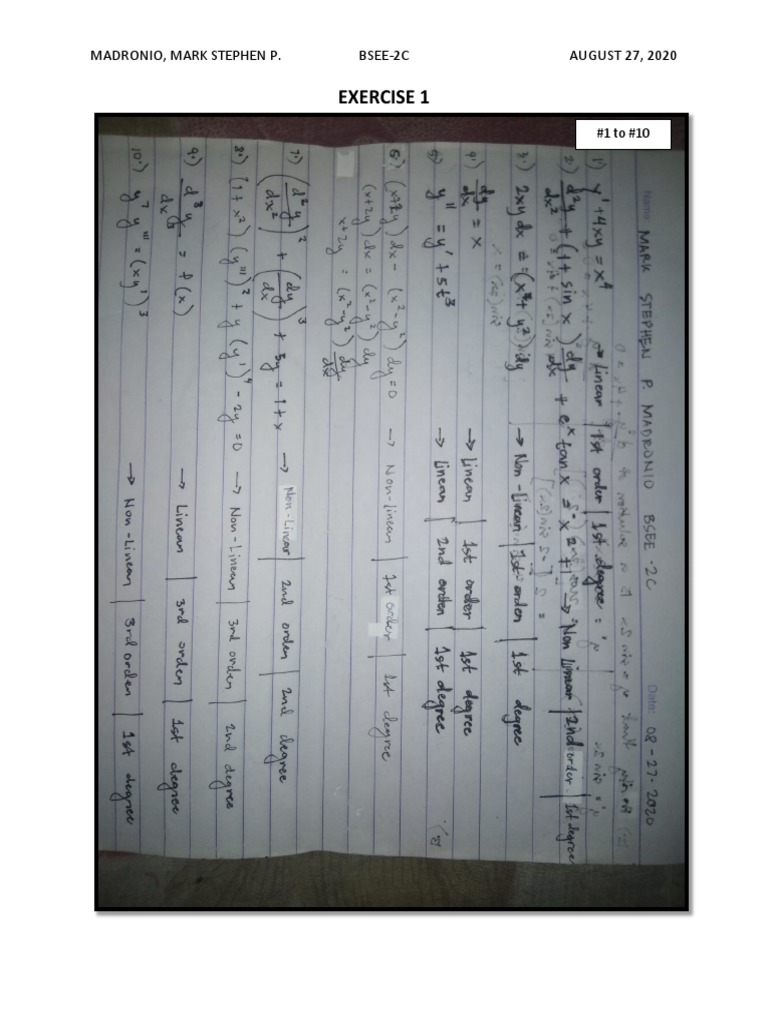 MADRONIO, MARK STEPHEN P. BSEE-2C AUGUST 27, 2020
EXERCISE 1
#1 to #10
Name: MARK STEPHEN P. MADRONIO BSEE-2C Date: 08-27-2020
1.) y' + 4xy = x⁴ → Linear | 1st order | 1st degree
2.) d²y/dx² + (1 + sin x) dy/dx + eˣ tan x = x² + 1 → Non Linear | 2nd order | 1st degree
3.) 2xy dx = (x² + y²) dy → Non-Linear | 1st order | 1st degree
4.) dy/dx = x → Linear | 1st order | 1st degree
5.) y'' = y' + 5t³ → Linear | 2nd order | 1st degree
6.) (x+2y) dx - (x²-y²) dy = 0 → Non-linear | 1st order | 1st degree
(x+2y) dx = (x²-y²) dy
x+2y = (x²-y²) dy/dx
7.) (d²y/dx²)² + (dy/dx)³ + 5y = 1+x → Non-Linear | 2nd order | 2nd degree
8.) (1+x²) (y''')² + y (y')⁴ - 2y = 0 → Non-Linear | 3rd order | 2nd degree
9.) d³y/dx = f(x) → Linear | 3rd order | 1st degree
10.) y⁷ y''' = (xy')³ → Non-Linear | 3rd order | 1st degree